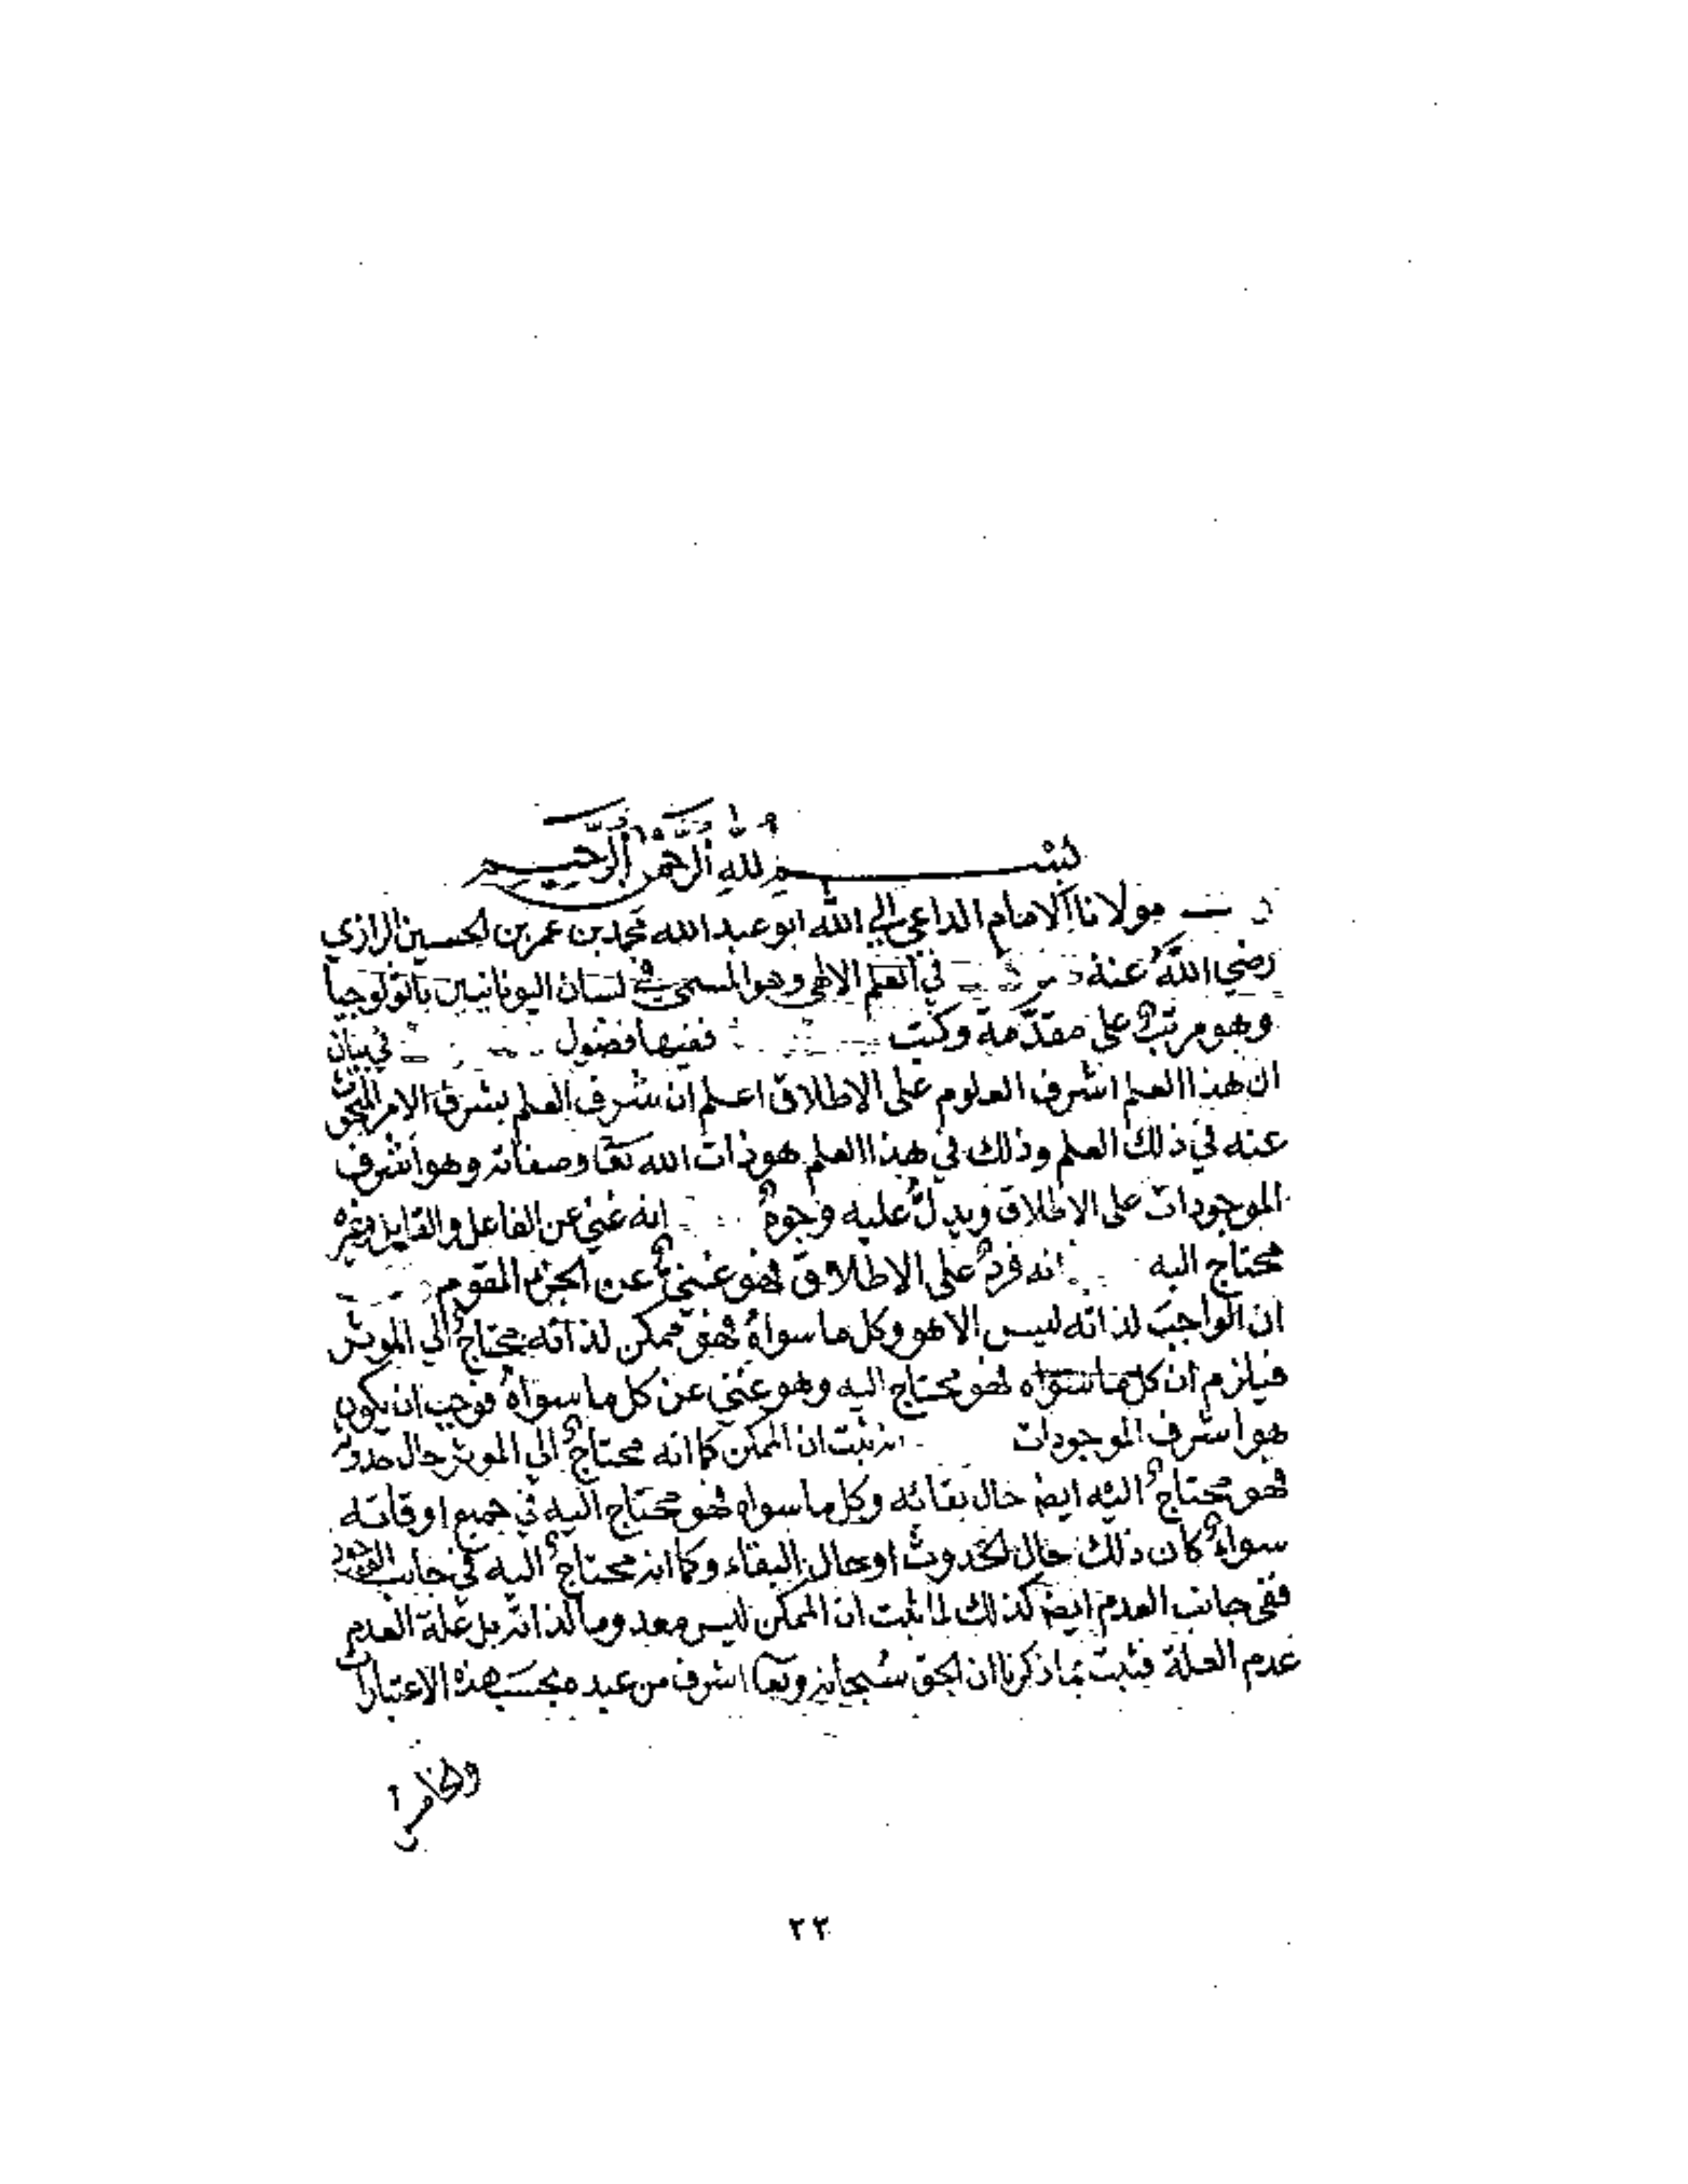 بسم الله الرحمن الرحيم
مولانا الامام الداعي الي الله ابو عبد الله محمد بن عمر بن الحسين الرازي
رضي الله عنه في العلم الالهي وهو المسمى في لسان اليونانيين باثولوجيا
وهو مرتب على مقدمة وكتب ففيها فصول في بيان
ان هذا العلم اشرف العلوم على الاطلاق اعلم ان شرف العلم بشرف الامر المبحوث
عنه في ذلك العلم وذلك في هذا العلم هو ذات الله تعا وصفاته وهو اشرف
الموجودات على الاطلاق ويدل عليه وجوه انه غني عن الفاعل والقابل وغيره
محتاج اليه انه فرد على الاطلاق فهو غني عن الجزء المقوم
ان الواجب لذاته ليس الا هو وكل ما سواه فهو ممكن لذاته محتاج الي الموثر
فيلزم ان كل ما سواه فهو محتاج اليه وهو غني عن كل ما سواه فوجب ان يكون
هو اشرف الموجودات انه ثبت ان الممكن كما انه محتاج الي الموثر حال حدوثه
فهو محتاج اليه ايضا حال بقائه وكل ما سواه فهو محتاج اليه في جميع اوقاته
سواء كان ذلك حال الحدوث او حال البقاء وكما انه محتاج اليه في جانب الوجود
ففي جانب العدم ايضا كذلك لما ثبت ان الممكن ليس معدوما لذاته بل علة العدم
عدم العلة فثبت بما ذكرنا ان الحق سبحانه وتعا اشرف من عبده بحسب هذه الاعتبارات
٢٢